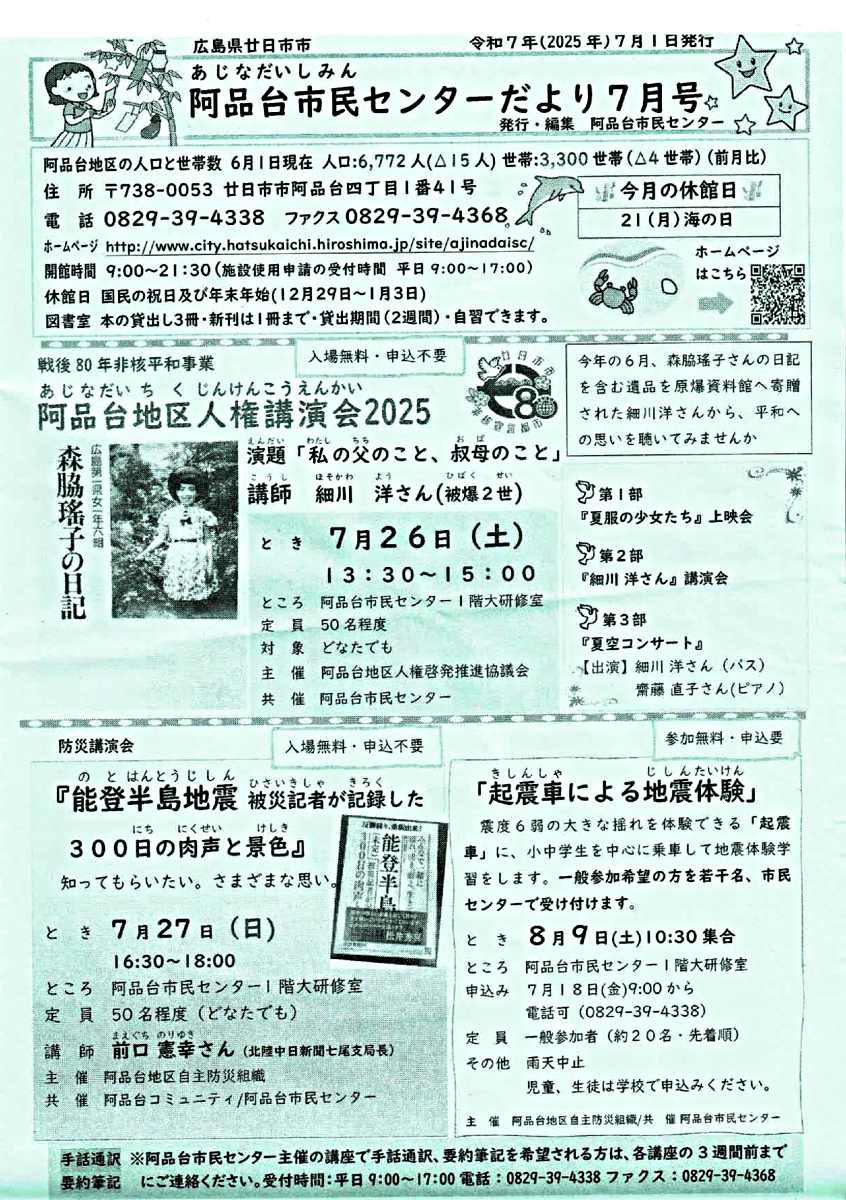 広島県廿日市市
令和7年(2025年)7月1日発行
あじなだいしみん
阿品台市民センターだより7月号
発行・編集 阿品台市民センター
阿品台地区の人口と世帯数 6月1日現在 人口:6,772人(△15人) 世帯:3,300世帯(△4世帯)(前月比)
住 所 〒738-0053 廿日市市阿品台四丁目1番41号
電 話 0829-39-4338 ファクス0829-39-4368
ホームページ http://www.city.hatsukaichi.hiroshima.jp/site/ajinadaisc/
開館時間 9:00~21:30(施設使用申請の受付時間 平日9:00~17:00)
休館日 国民の祝日及び年末年始(12月29日~1月3日)
図書室 本の貸出し3冊・新刊は1冊まで・貸出期間(2週間)・自習できます。
今月の休館日
21(月)海の日
ホームページ
はこちら
戦後80年非核平和事業
入場無料・申込不要
あじなだい ち く じんけんこうえんかい
阿品台地区人権講演会2025
廿日市市
今年の6月、森脇瑤子さんの日記
を含む遺品を原爆資料館へ寄贈
された細川洋さんから、平和へ
の思いを聴いてみませんか
広島第一県女一年六組
森脇瑤子の日記
えんだい わたし ちち おば
演題「私の父のこと、叔母のこと」
こうし ほそかわ よう ひばく せい
講師 細川 洋さん(被爆2世)
と き 7月26日(土)
13:30~15:00
ところ 阿品台市民センター1階大研修室
定 員 50名程度
対 象 どなたでも
主 催 阿品台地区人権啓発推進協議会
共 催 阿品台市民センター
第1部
『夏服の少女たち』上映会
第2部
『細川 洋さん』講演会
第3部
『夏空コンサート』
【出演】細川 洋さん(バス)
齋藤 直子さん(ピアノ)
防災講演会
入場無料・申込不要
の と はんとうじしん ひさいきしゃ きろく
『能登半島地震 被災記者が記録した
にち にくせい けしき
300日の肉声と景色』
知ってもらいたい。さまざまな思い。
能登半島
と き 7月27日(日)
16:30~18:00
ところ 阿品台市民センター1階大研修室
定 員 50名程度(どなたでも)
まえぐち のりゆき
講 師 前口 憲幸さん(北陸中日新聞七尾支局長)
主 催 阿品台地区自主防災組織
共 催 阿品台コミュニティ/阿品台市民センター
参加無料・申込要
きしんしゃ じしんたいけん
「起震車による地震体験」
震度6弱の大きな揺れを体験できる「起震
車」に、小中学生を中心に乗車して地震体験学
習をします。一般参加希望の方を若干名、市民
センターで受け付けます。
と き 8月9日(土)10:30集合
ところ 阿品台市民センター1階大研修室
申込み 7月18日(金)9:00から
電話可(0829-39-4338)
定 員 一般参加者(約20名・先着順)
その他 雨天中止
児童、生徒は学校で申込みください。
主 催 阿品台地区自主防災組織/共 催 阿品台市民センター
手話通訳 ※阿品台市民センター主催の講座で手話通訳、要約筆記を希望される方は、各講座の3週間前まで
要約筆記 にご連絡ください。受付時間:平日9:00~17:00 電話:0829-39-4338 ファクス:0829-39-4368